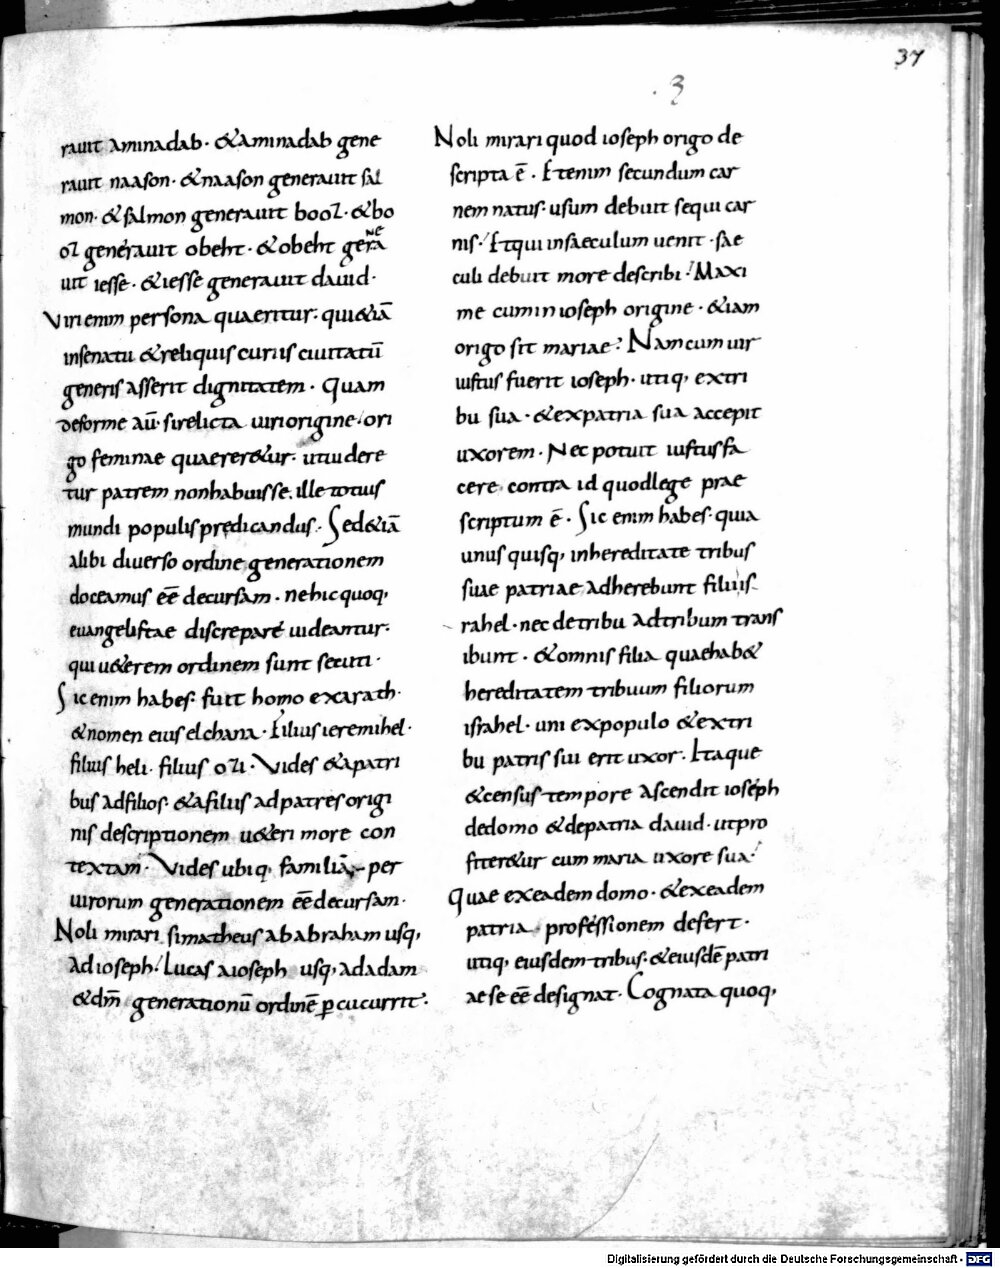 37
. 3
rauit aminadab · &aminadab gene
rauit naason · &naason generauit sal
mon · & salmon generauit booz · &bo
oz generauit obeht · &obeht gera
ne
uit iesse · &iesse generauit dauid ·
Viri enim persona quaeritur · qui &iā
insenatu &reliquis curiis ciuitatū
generis asserit dignitatem · Quam
deforme aū · si relicta uiri origine · ori
go feminae quaerer&ur · ut uidere
tur patrem non habuisse · ille totius
mundi populis predicandus · Sed &iā
alibi diuerso ordine generationem
doceamus eē decursam · ne hic quoq,
euangelistae discrepare uideantur ·
qui u&erem ordinem sunt secuti ·
Sic enim habes · fuit homo exarath ·
&nomen eius elchana · Filius ieremihel ·
filius heli · filius ozi · Vides &apatri
bus adfilios · &afiliis ad patres origi
nis descriptionem u&eri more con
textam · Vides ubiq, familiā, per
uirorum generationem eē decursam ·
Noli mirari si matheus ab abraham usq,
ad ioseph! Lucas aioseph usq, adadam
&dm̄ generationū ordinē p cucurrit ·
Noli mirari quod ioseph origo de
scripta ē · Etenim secundum car
nem natus · usum debuit sequi car
nis · Et qui insaeculum uenit · sae
culi debuit more describi! Maxi
me cum in ioseph origine · &iam
origo sit mariae? Nam cum uir
iustus fuerit ioseph · utiq, ex tri
bu sua · &expatria sua accepit
uxorem · Nec potuit iustus fa
cere contra id quod lege prae
scriptum ē · Sic enim habes · quia
unus quisq, inhereditate tribus
suae patriae adherebunt filii is
rahel · nec de tribu ad tribum trans
ibunt · &omnis filia quae hab&
hereditatem tribuum filiorum
israhel · uni expopulo &extri
bu patris sui erit uxor · Itaque
&census tempore ascendit ioseph
dedomo &depatria dauid · ut pro
fiter&ur cum maria uxore sua!
Quae exeadem domo · &exeadem
patria · professionem defert ·
utiq, eiusdem tribus · &eiusdē patri
ae se eē designat · Cognata quoq,
Digitalisierung gefördert durch die Deutsche Forschungsgemeinschaft - DFG